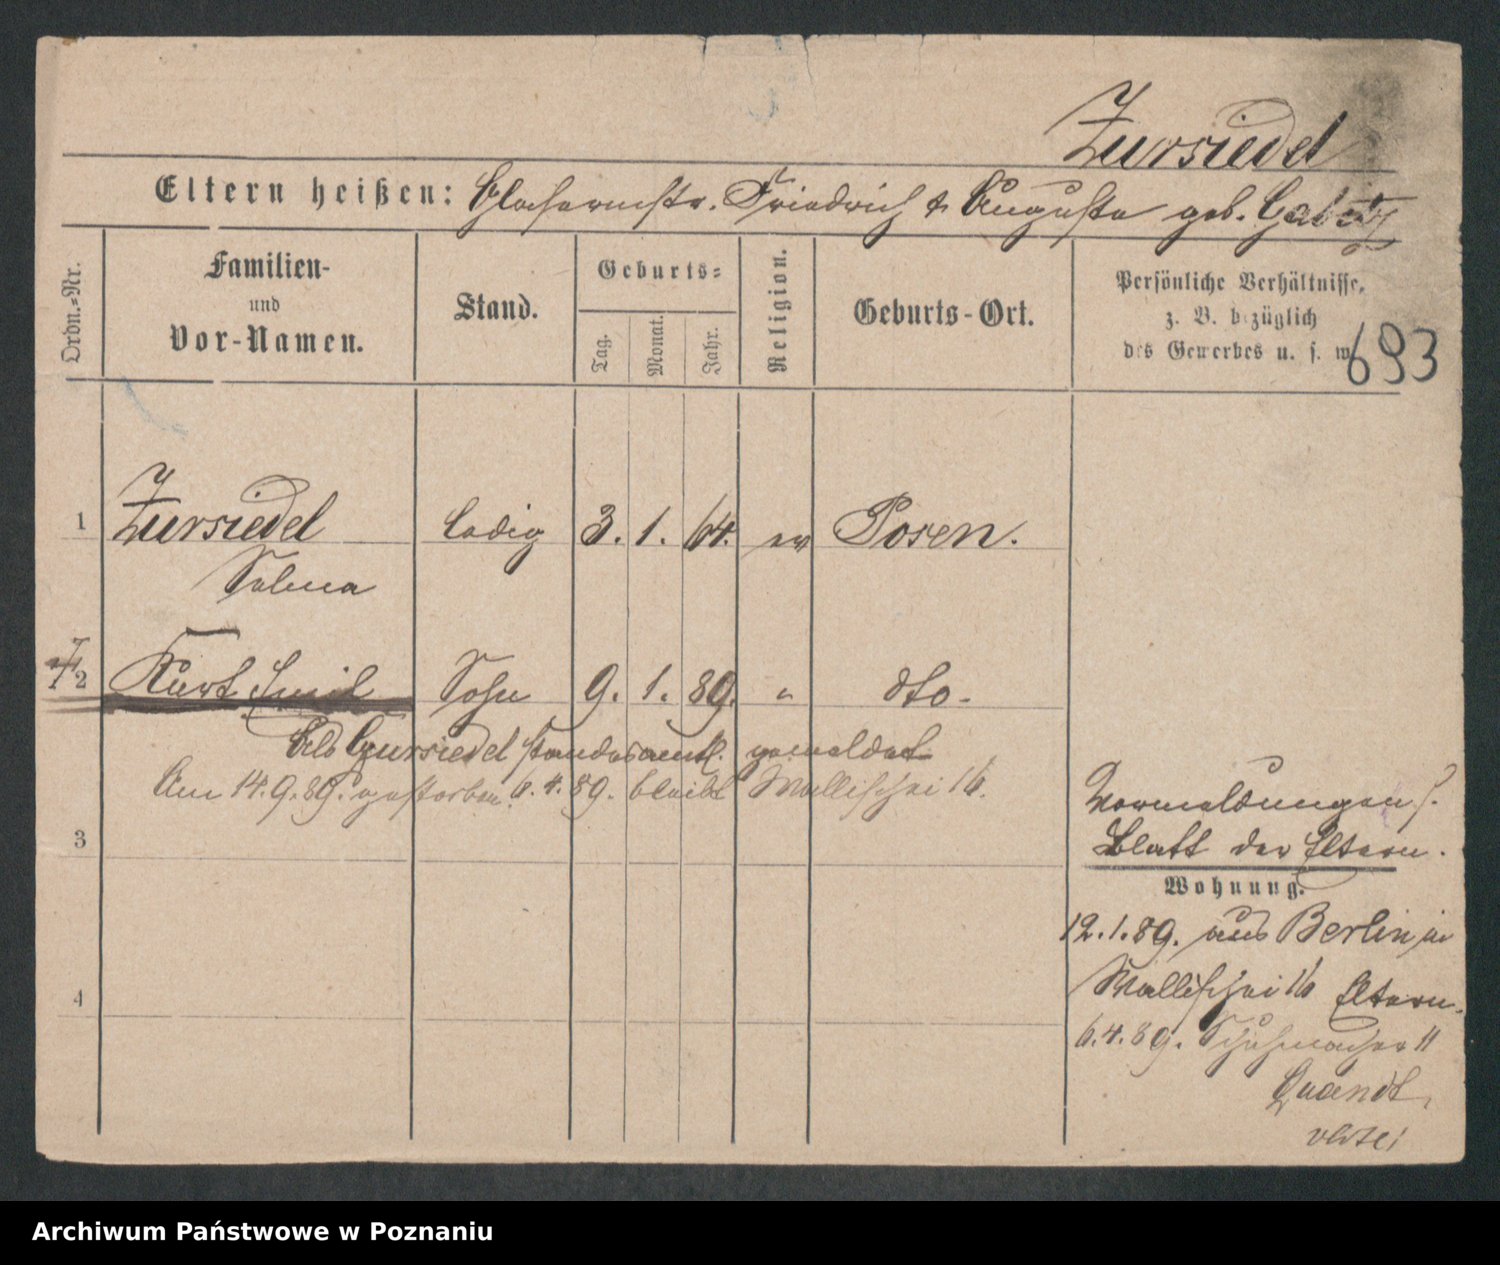 Zursiedel
Eltern heißen: Glasermstr. Friedrich & Auguste geb.
Ordn.=Nr.
Familien-
und
Vor-Namen.
Stand.
Geburts=
Tag.
Monat.
Jahr.
Religion.
Geburts-Ort.
Persönliche Verhältnisse,
z. B. bezüglich
des Gewerbes u. s. w.
693
1 Zursiedel ledig 3. 1. 64. ev Posen.
Selma
2 Kurt Emil Sohn 9. 1. 89. " dto-
Als Zursiedel standesamtl. gemeldet
Am 14.9.89. gestorben. 6.4.89. bleibt Wallischei 16.
3
4
Vormeldungen s.
Blatt der Eltern.
Wohnung.
12.1.89. aus Berlin in
Wallischei 16 Eltern.
6.4.89. Schuhmacher 11
Quandt
Archiwum Państwowe w Poznaniu